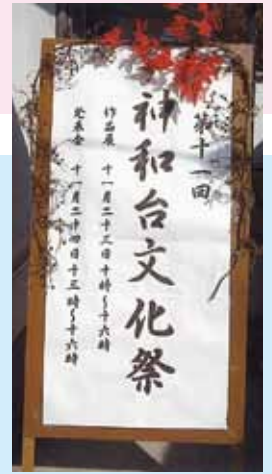 第十一回
神和台文化祭
作品展 十一月二十三日十時〜十六時
発表会 十一月二十四日十三時〜十六時